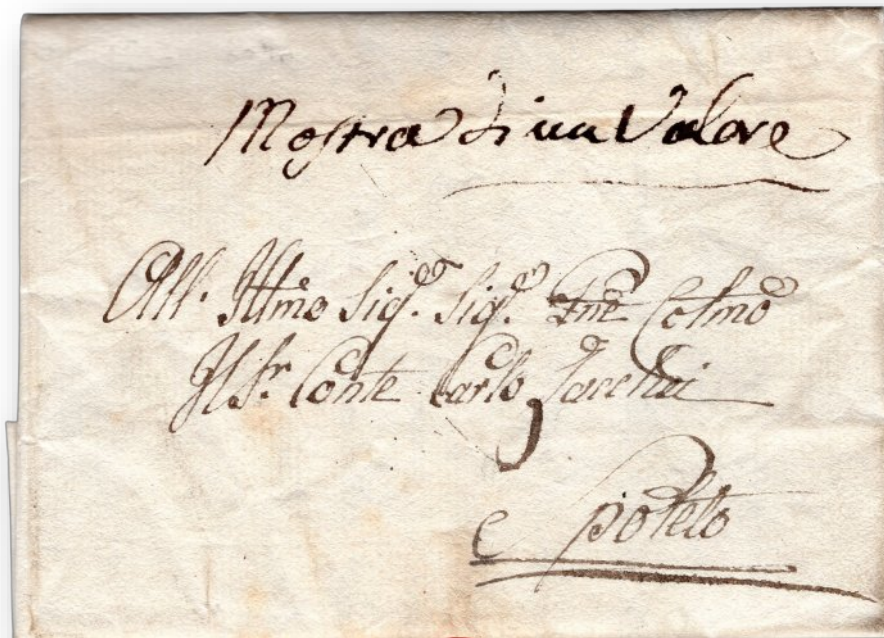 Mostra di un Valore
All'. Illmo Sig.r Sig.r Pne Colmo
Il Sr. Conte Carlo
Spoleto